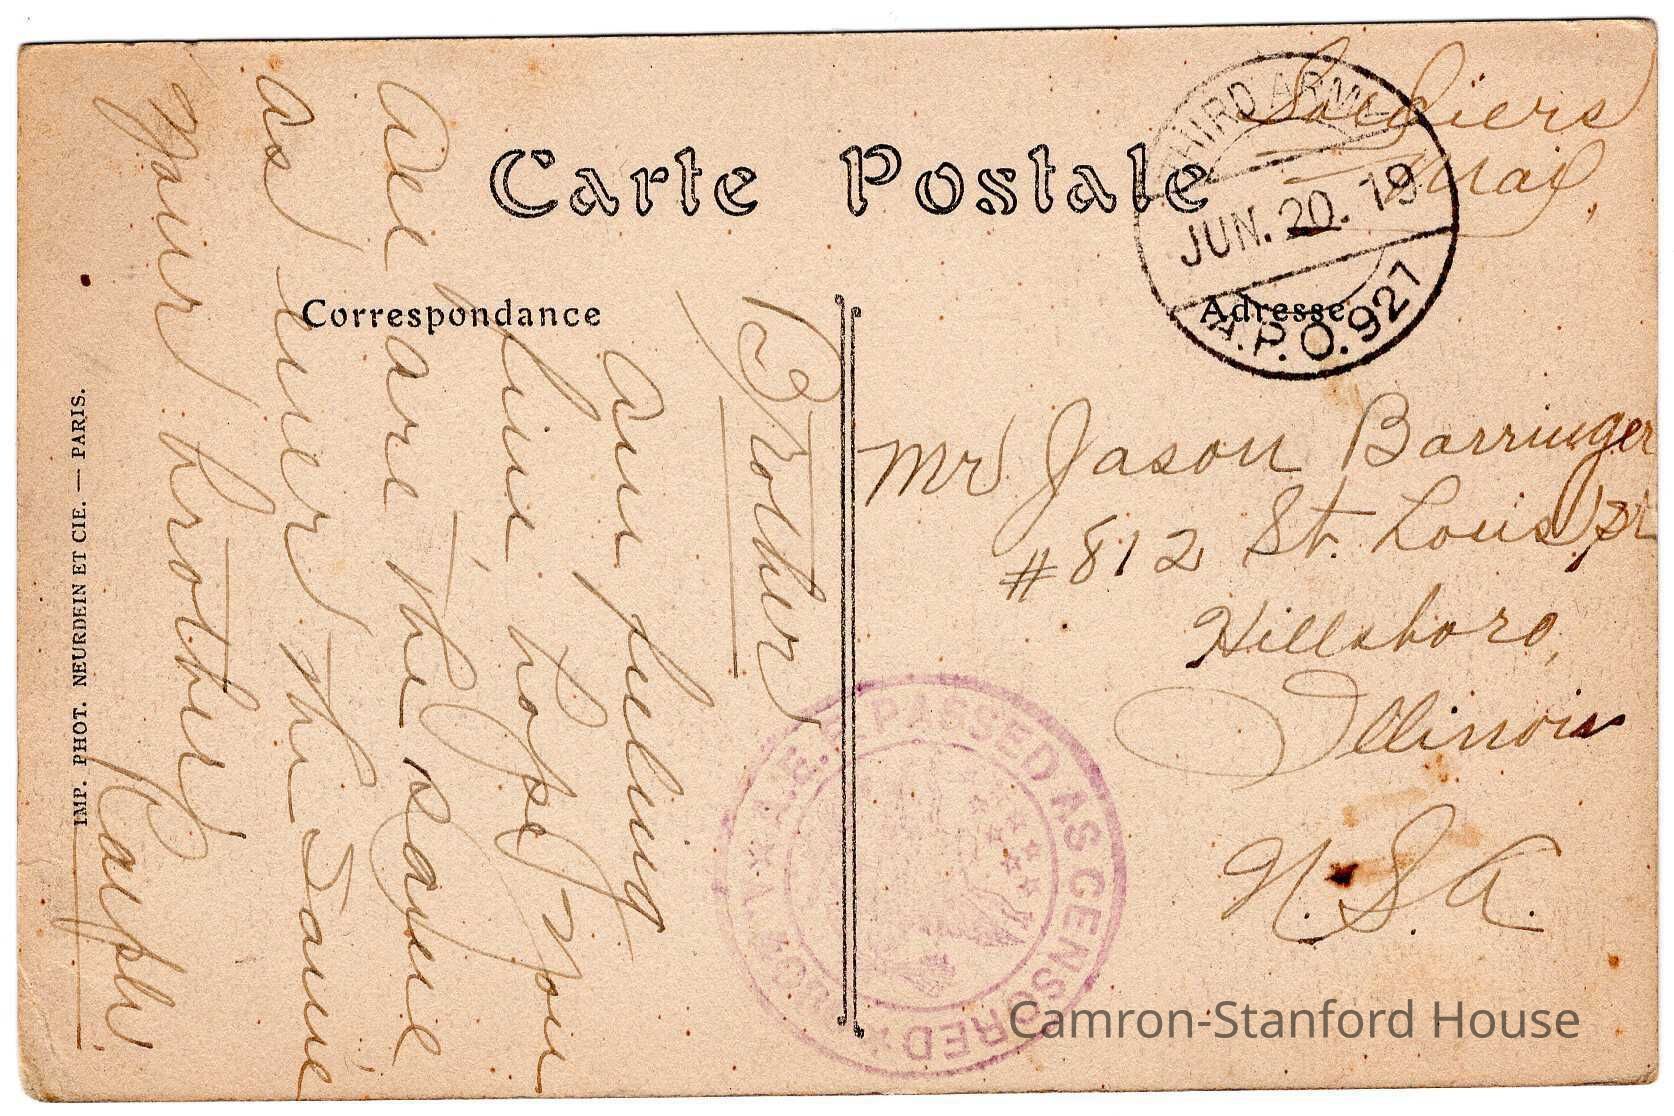 Carte Postale
Soldiers
Mail
THIRD ARMY
JUN. 20. 19
A.P.O. 927
Correspondance
Adresse
Brother
am feeling
fine hope you
all are the same
as ever the same
your brother
Ralph
Mr Jason Barringer
#812 St. Louis St
Hillsboro,
Illinois
U.S.A.
A.E.F. PASSED AS CENSORED
IMP. PHOT. NEURDEIN ET CIE. — PARIS.
Camron-Stanford House